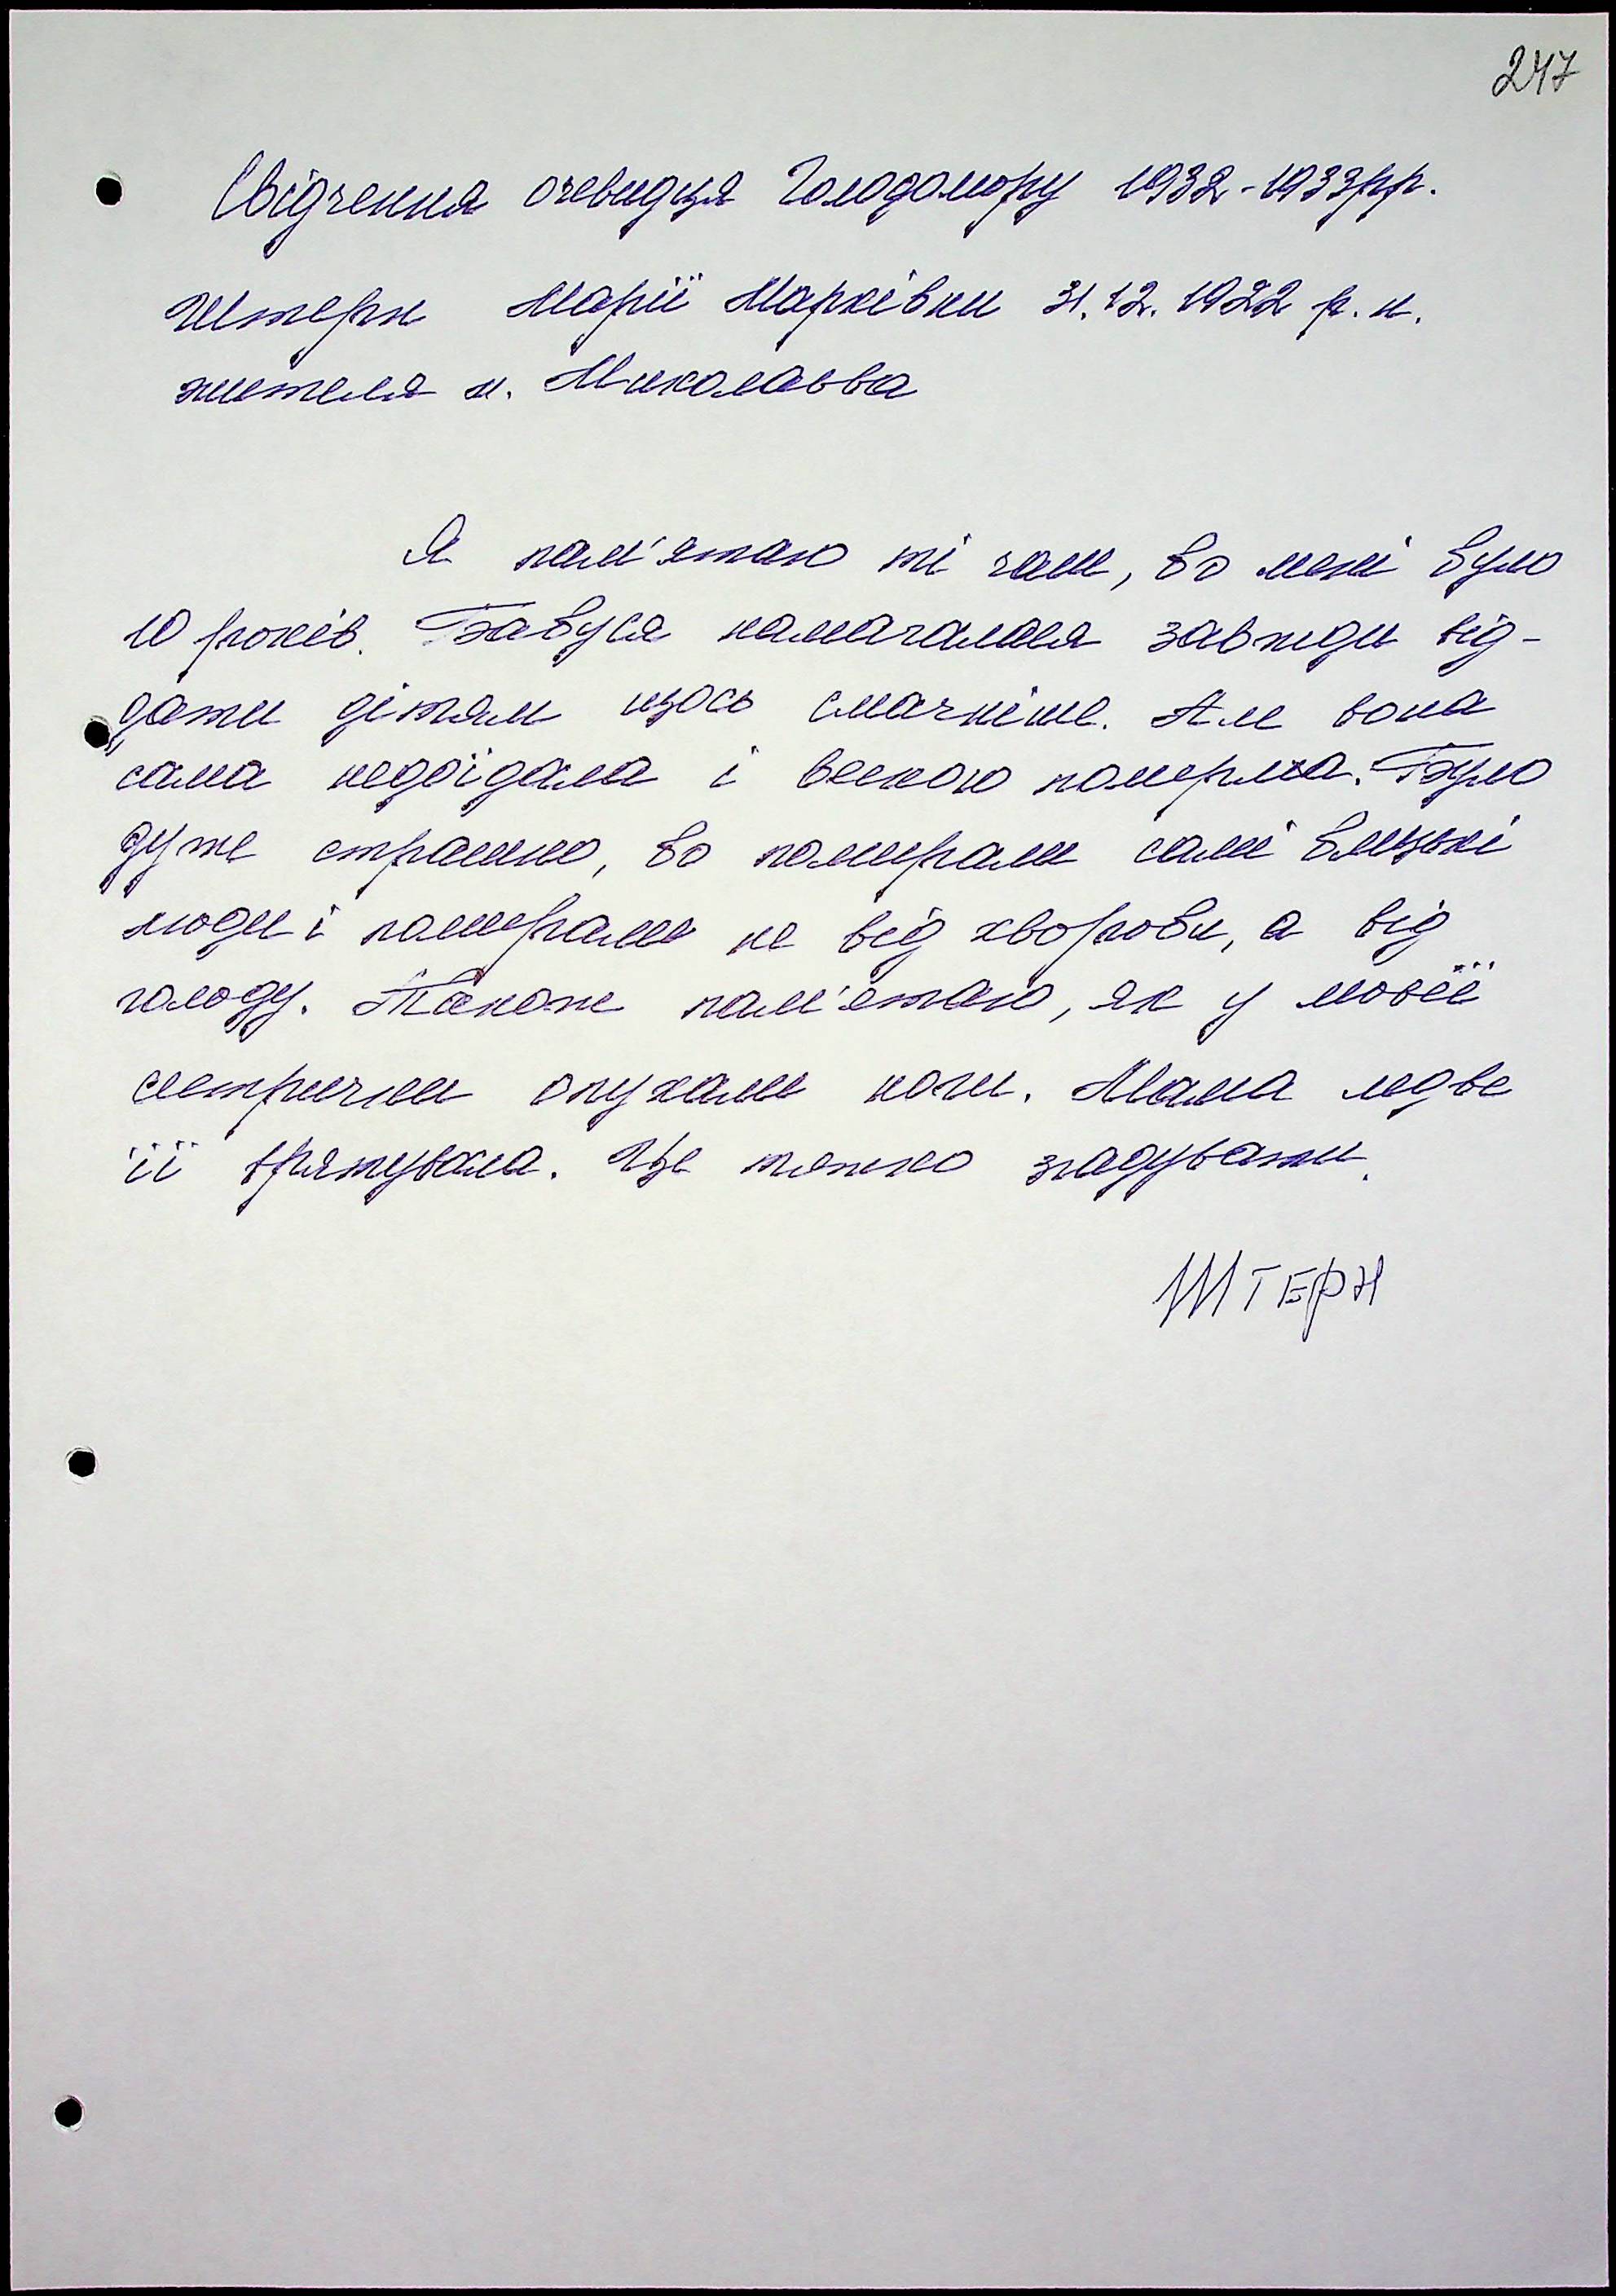 247
Свідчення очевидця Голодомору 1932-1933рр.
Штерн Марії Марківни 31.12.1922 р.н.
жителя м. Миколаєва
Я пам'ятаю ті часи, бо мені було
10 років. Бабуся намагалася завжди від-
дати дітям щось смачніше. Але вона
сама недоїдала і весною померла. Було
дуже страшно, бо помирали самі близькі
люди і помирали не від хвороби, а від
голоду. Також пам'ятаю, як у моєї
сестрички опухали ноги. Мама ледве
її врятувала. Це тяжко згадувати.
ШТЕРН